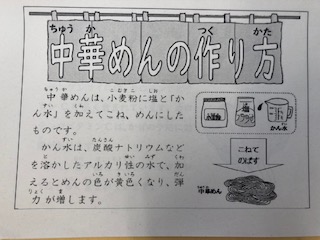 中華めんの作り方
中華めんは、小麦粉に塩と「か
ん水」を加えてこね、めんにした
ものです。
かん水は、炭酸ナトリウムなど
を溶かしたアルカリ性の水で、加
えるとめんの色が黄色くなり、弾
力が増します。
小麦粉
塩
かん水
こねて
のばす
中華めん